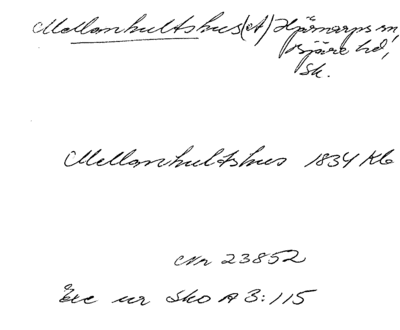 Mellanhultshus (A) Hjärnarps sn,
Bjäre hd,
Sk.
Mellanhultshus 1834 Kb
Nr 23852
Exc ur Sko A 3:115